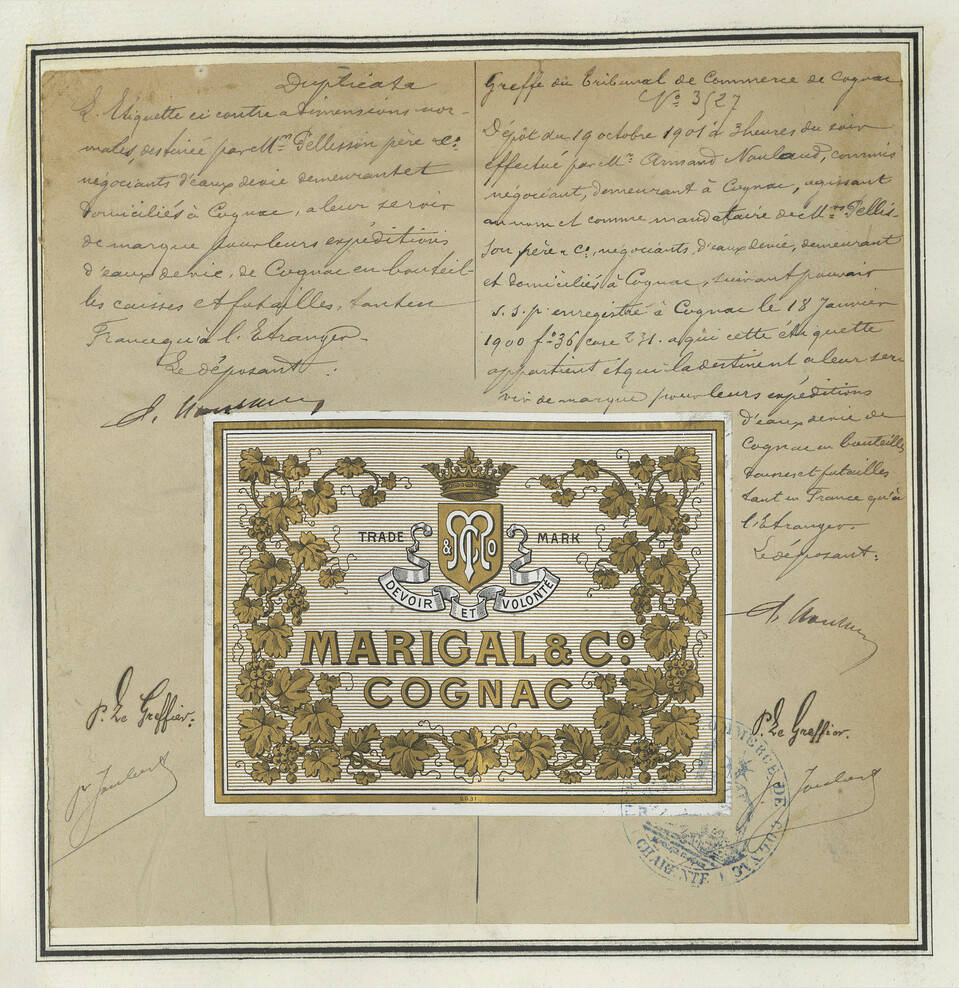 Duplicata
L'Etiquette ci contre a dimensions nor-
males, destinée par Mrs Pellisson père & Co.
négociants d'eaux de vie demeurant et
domiciliés à Cognac, a leur servir
de marque pour leurs expéditions
d'eaux de vie, de Cognac en bouteil-
les caisses et futailles, tant en
France qu'à l'Etranger.
Le déposant:
Greffe du Tribunal de Commerce de Cognac
No 3527
Dépôt du 19 octobre 1901 à 3 heures du soir
effectué par Mr Armand Nouland, commis
négociant, demeurant à Cognac, agissant
au nom et comme mandataire de Mrs Pellis-
son père & Co, négociants d'eaux de vie, demeurant
et domiciliés à Cognac, suivant pouvoir
s. s. p. enregistré à Cognac le 18 Janvier
1900 fo 36 case 231. a qui cette étiquette
appartient et qui la destinent a leur ser-
vir de marque pour leurs expéditions
d'eaux de vie de
Cognac en bouteilles
caisses et futailles
tant en France qu'à
l'Etranger.
Le déposant:
TRADE MARK
& Co
DEVOIR ET VOLONTÉ
MARIGAL & Co
COGNAC
P. Le Greffier.
Joubert
P. Le Greffier.
Joubert
COMMERCE DE COGNAC
CHARENTE